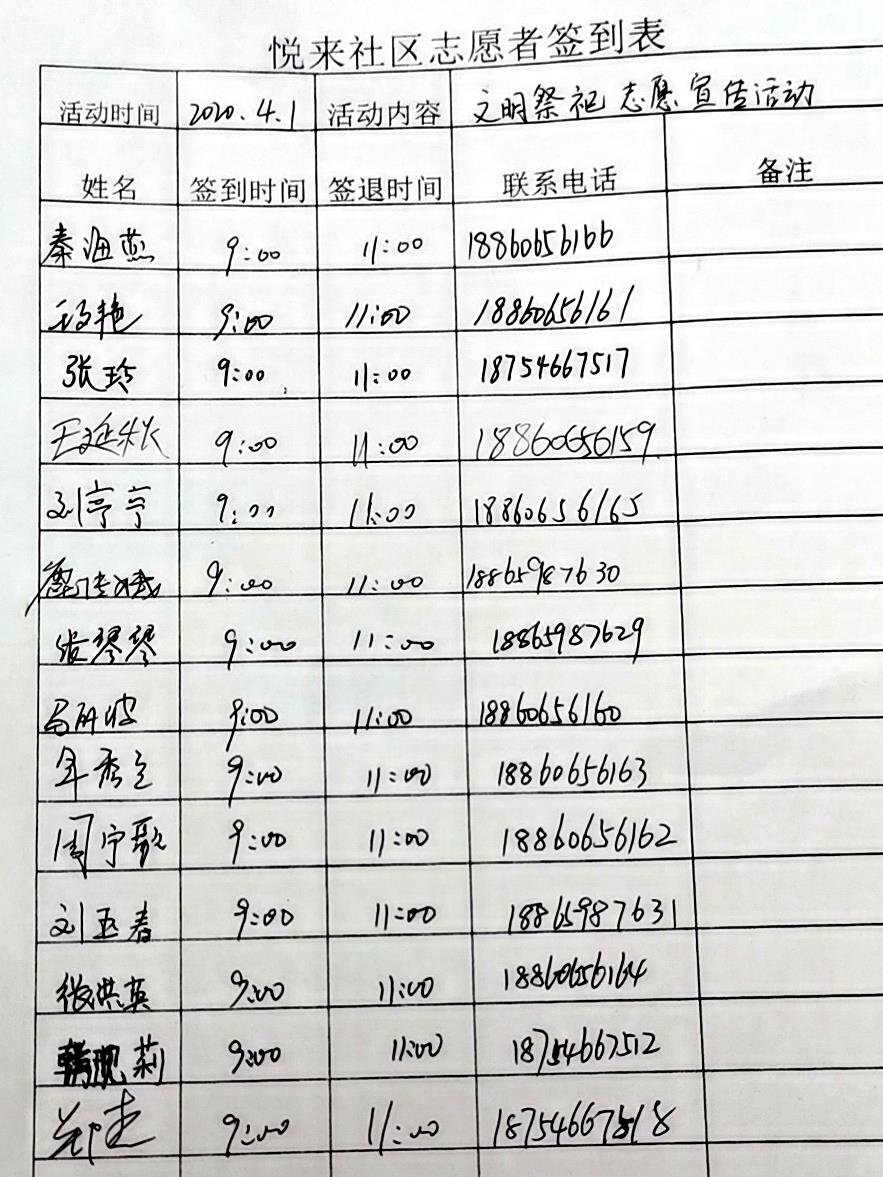 悦来社区志愿者签到表
活动时间 2020.4.1 活动内容 文明祭祀志愿宣传活动
姓名 签到时间 签退时间 联系电话 备注
秦海燕 9:00 11:00 18860656166
艳 9:00 11:00 18860656161
张玲 9:00 11:00 18754667517
王延秋 9:00 11:00 18860656159
刘亭亭 9:00 11:00 18860656165
9:00 11:00 18865987630
张琴琴 9:00 11:00 18865987629
9:00 11:00 18860656160
年秀兰 9:00 11:00 18860656163
周宁歌 9:00 11:00 18860656162
刘玉春 9:00 11:00 18865987631
张洪英 9:00 11:00 18860656164
莉 9:00 11:00 18754667512
9:00 11:00 18754667518